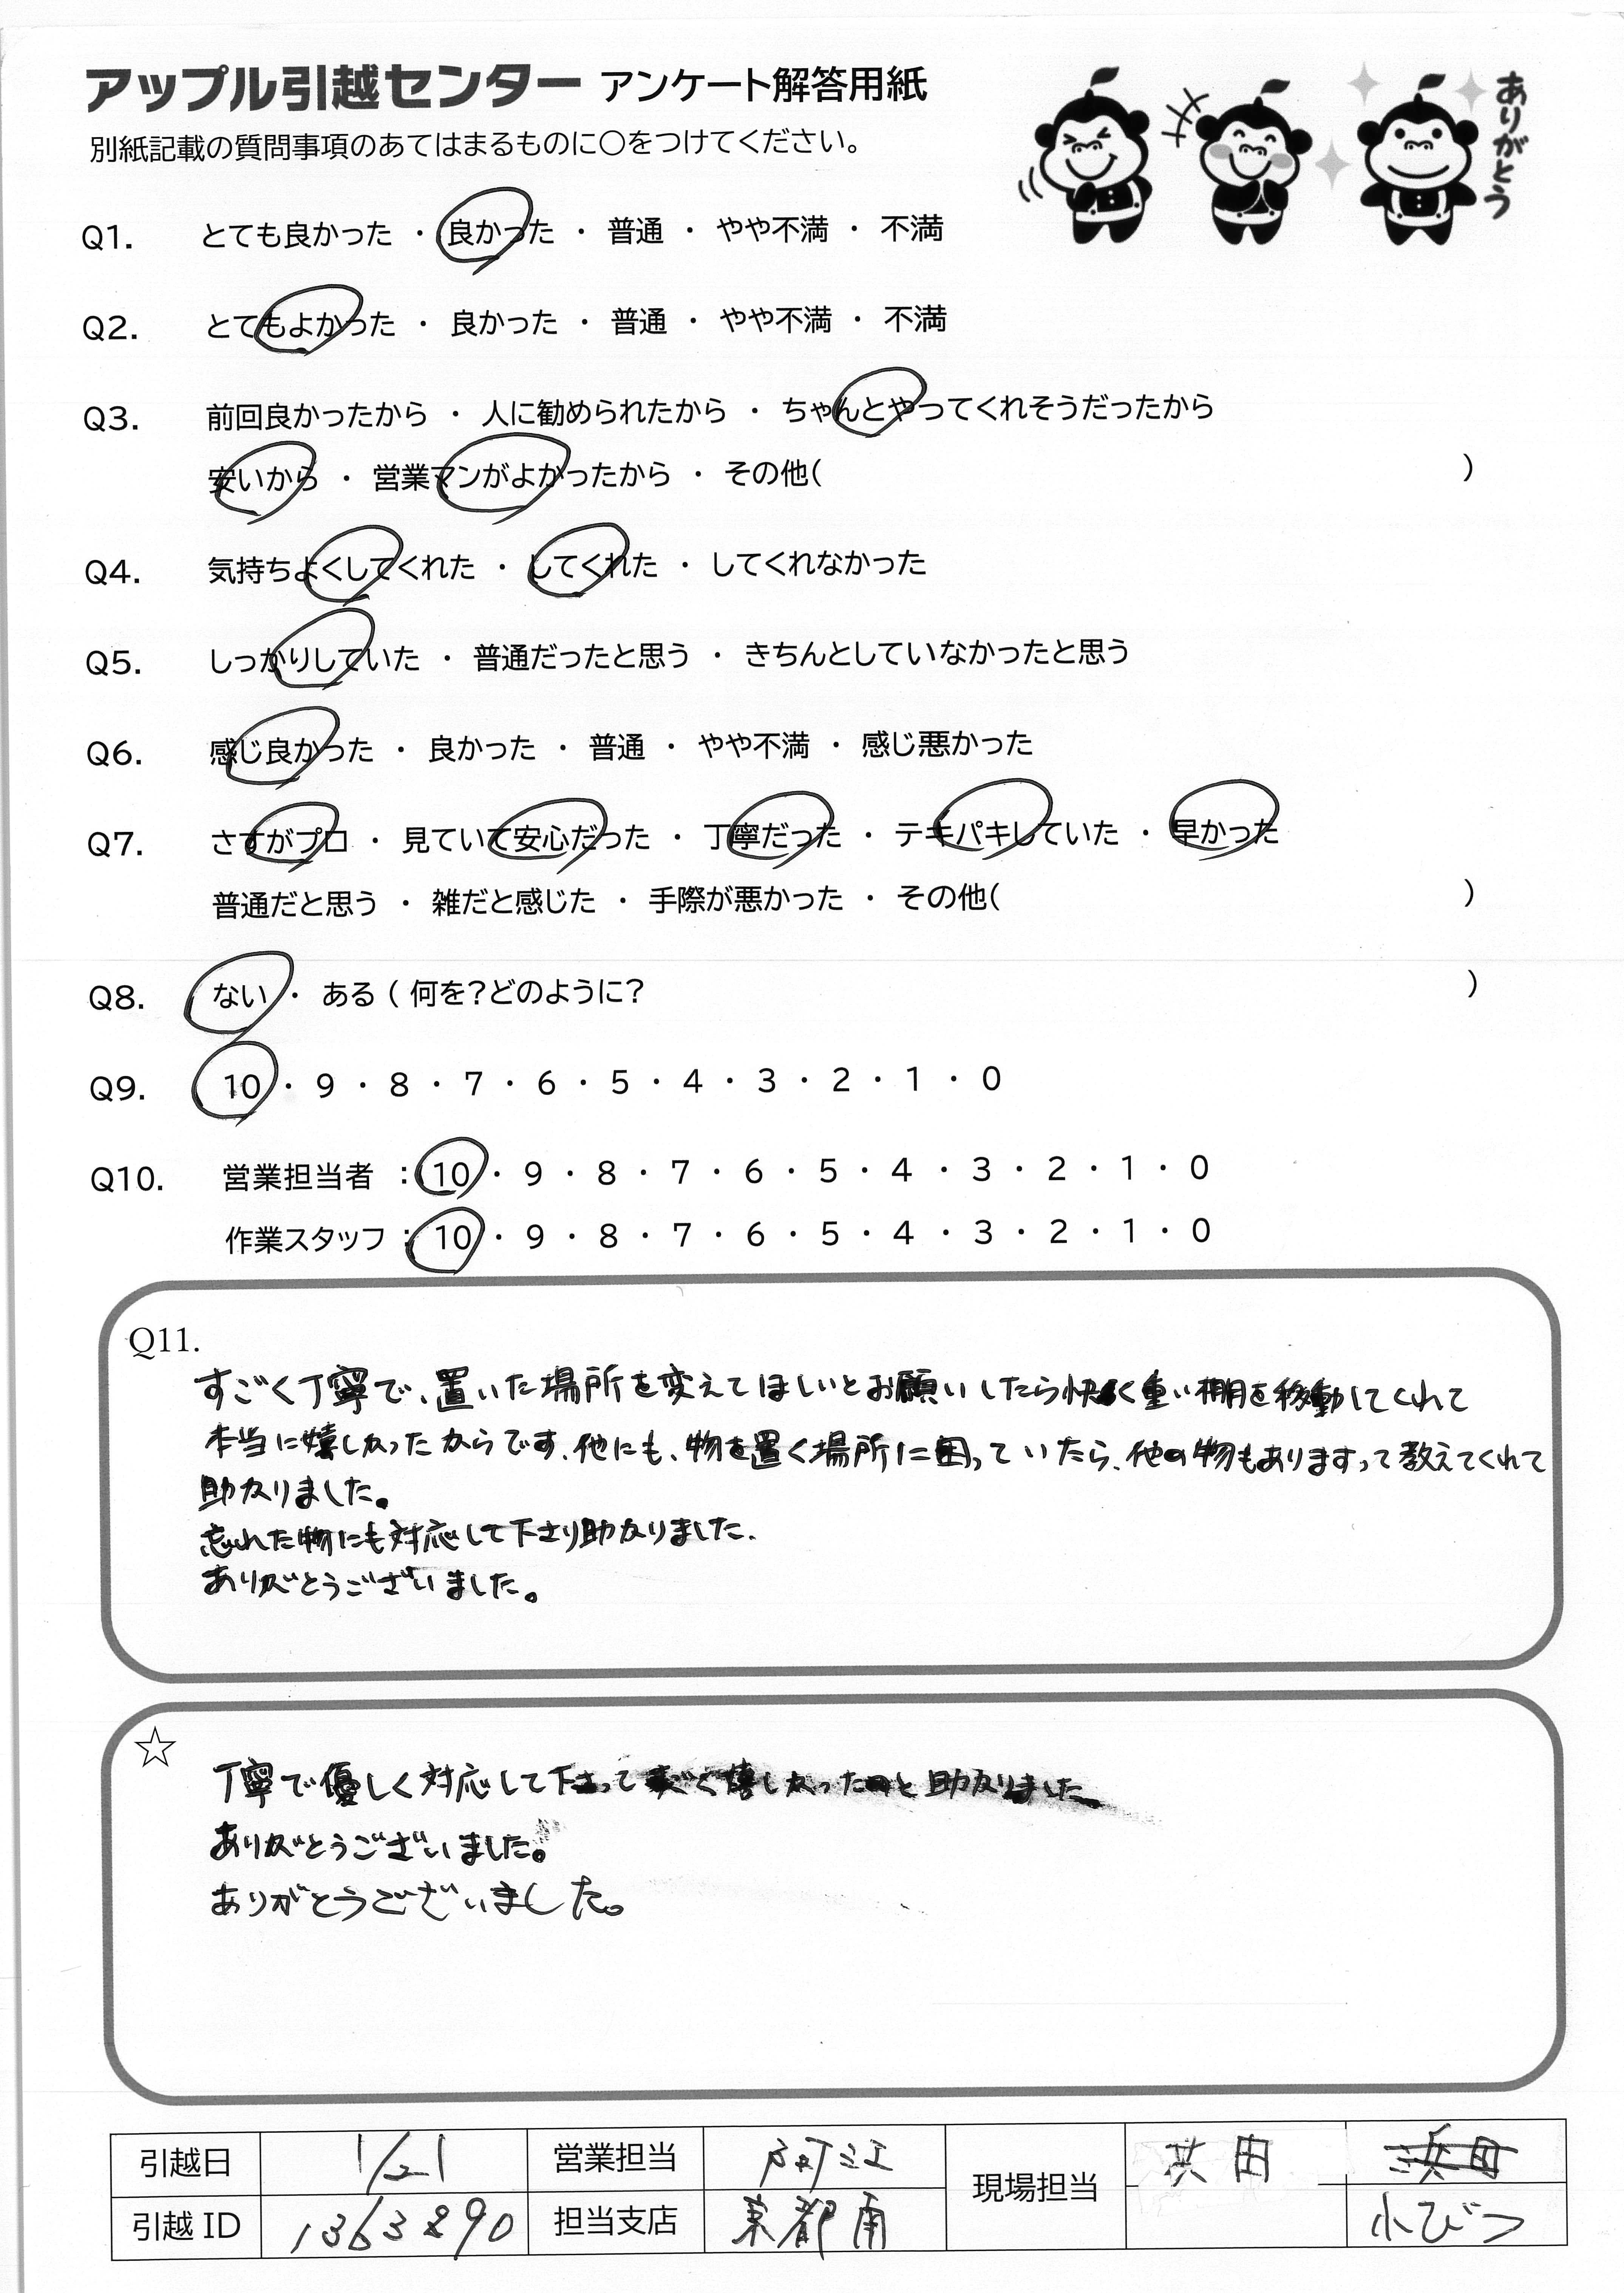 アップル引越センター アンケート解答用紙
別紙記載の質問事項のあてはまるものに〇をつけてください。
ありがとう
Q1. とても良かった ・ 良かった ・ 普通 ・ やや不満 ・ 不満
Q2. とてもよかった ・ 良かった ・ 普通 ・ やや不満 ・ 不満
Q3. 前回良かったから ・ 人に勧められたから ・ ちゃんとやってくれそうだったから
安いから ・ 営業マンがよかったから ・ その他( )
Q4. 気持ちよくしてくれた ・ してくれた ・ してくれなかった
Q5. しっかりしていた ・ 普通だったと思う ・ きちんとしていなかったと思う
Q6. 感じ良かった ・ 良かった ・ 普通 ・ やや不満 ・ 感じ悪かった
Q7. さすがプロ ・ 見ていて安心だった ・ 丁寧だった ・ テキパキしていた ・ 早かった
普通だと思う ・ 雑だと感じた ・ 手際が悪かった ・ その他( )
Q8. ない ・ ある ( 何を?どのように? )
Q9. 10 ・ 9 ・ 8 ・ 7 ・ 6 ・ 5 ・ 4 ・ 3 ・ 2 ・ 1 ・ 0
Q10. 営業担当者 : 10 ・ 9 ・ 8 ・ 7 ・ 6 ・ 5 ・ 4 ・ 3 ・ 2 ・ 1 ・ 0
作業スタッフ : 10 ・ 9 ・ 8 ・ 7 ・ 6 ・ 5 ・ 4 ・ 3 ・ 2 ・ 1 ・ 0
Q11.
すごく丁寧で、置いた場所を変えてほしいとお願いしたら快く重い棚を移動してくれて
本当に嬉しかったからです。他にも、物を置く場所に困っていたら、他の物もありますって教えてくれて
助かりました。
忘れた物にも対応して下さり助かりました。
ありがとうございました。
☆
丁寧で優しく対応して下さってすごく嬉しかったのと助かりました
ありがとうございました。
ありがとうございました。
引越日 1/21 営業担当 現場担当
引越ID 1363290 担当支店 京都南 小びつ